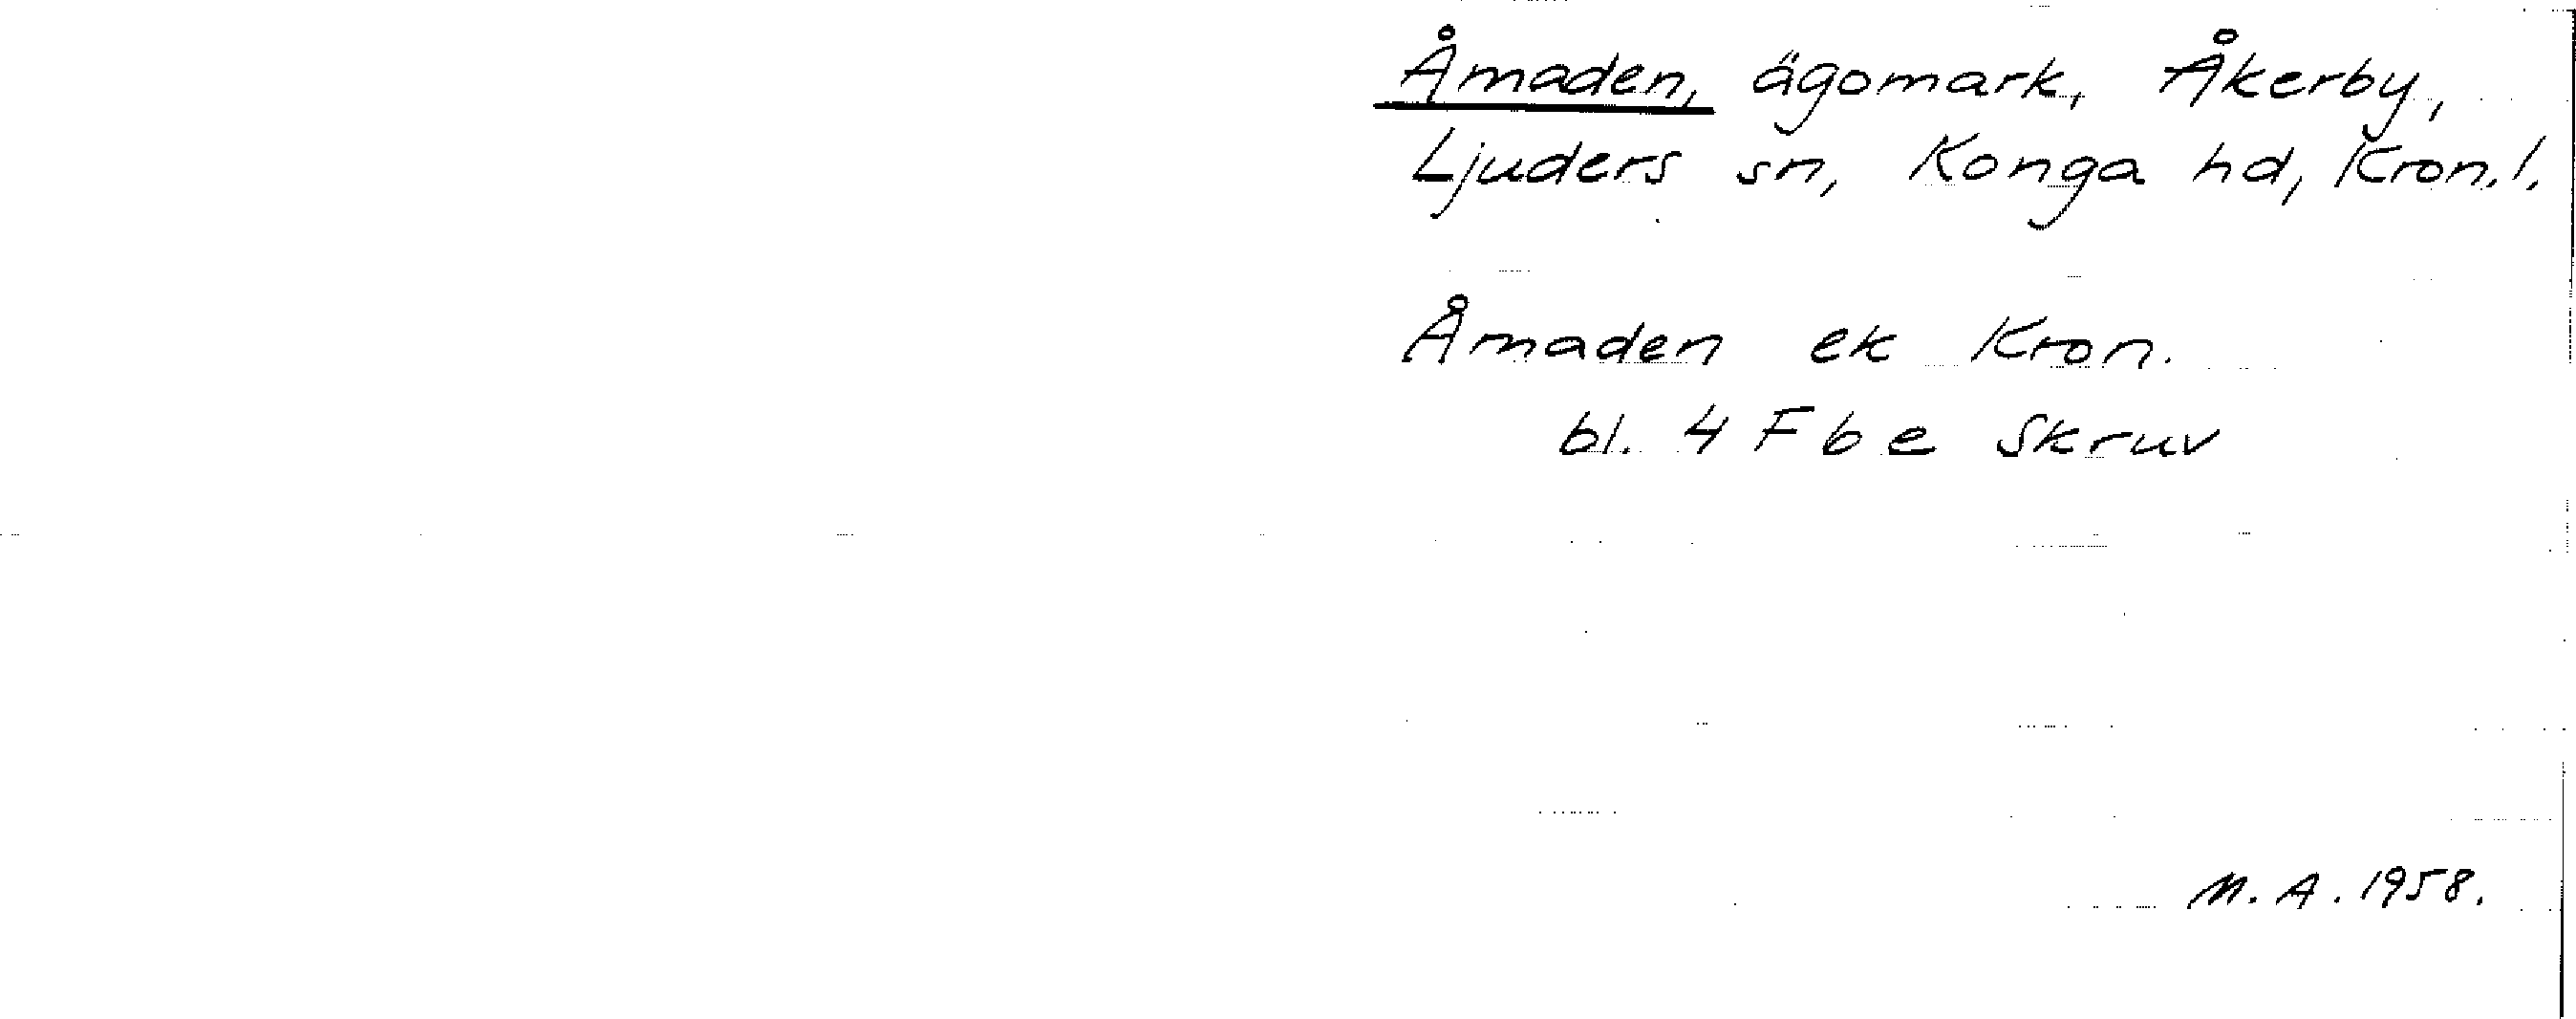 Åmaden, ägomark, Åkerby,
Ljuders sn, Konga hd, Kron.l.
Åmaden ek Kron.
bl. 4 F b e Skruv
M.A. 1958.